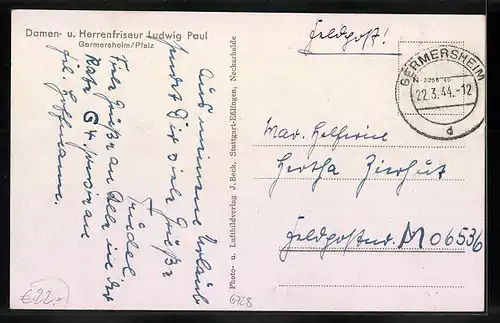 Damen- u. Herrenfriseur Ludwig Paul
Germersheim/Pfalz
Aus meinem Urlaub
sendet Dir viele Grüße
Trudel.
Viele Grüße an Alle in der
Hoffmann.
Photo- u. Luftbildverlag J. Beck, Stuttgart-Eßlingen, Neckarhalde
Feldpost!
GERMERSHEIM
22.3.44.-12
d
Mar. Helferin
Hertha Zierhut
Feldpostnr. M 06536
€22.-
6728